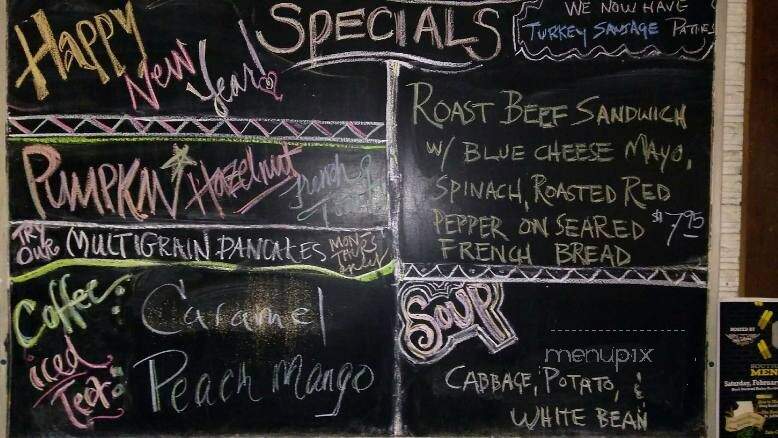 Happy
New
Year!
SPECIALS
WE NOW HAVE
TURKEY SAUSAGE PATTIES
PUMPKIN HAZELNUT
French
TRY
OUR MULTIGRAIN PANCAKES MON
Coffee:
Caramel
iced
Tea:
Peach Mango
ROAST BEEF SANDWICH
W/ BLUE CHEESE MAYO,
SPINACH, ROASTED RED
PEPPER ON SEARED $7.95
FRENCH BREAD
SOUP
menupix
CABBAGE, POTATO, &
WHITE BEAN
HOSTED BY
MEN
Saturday, Februar